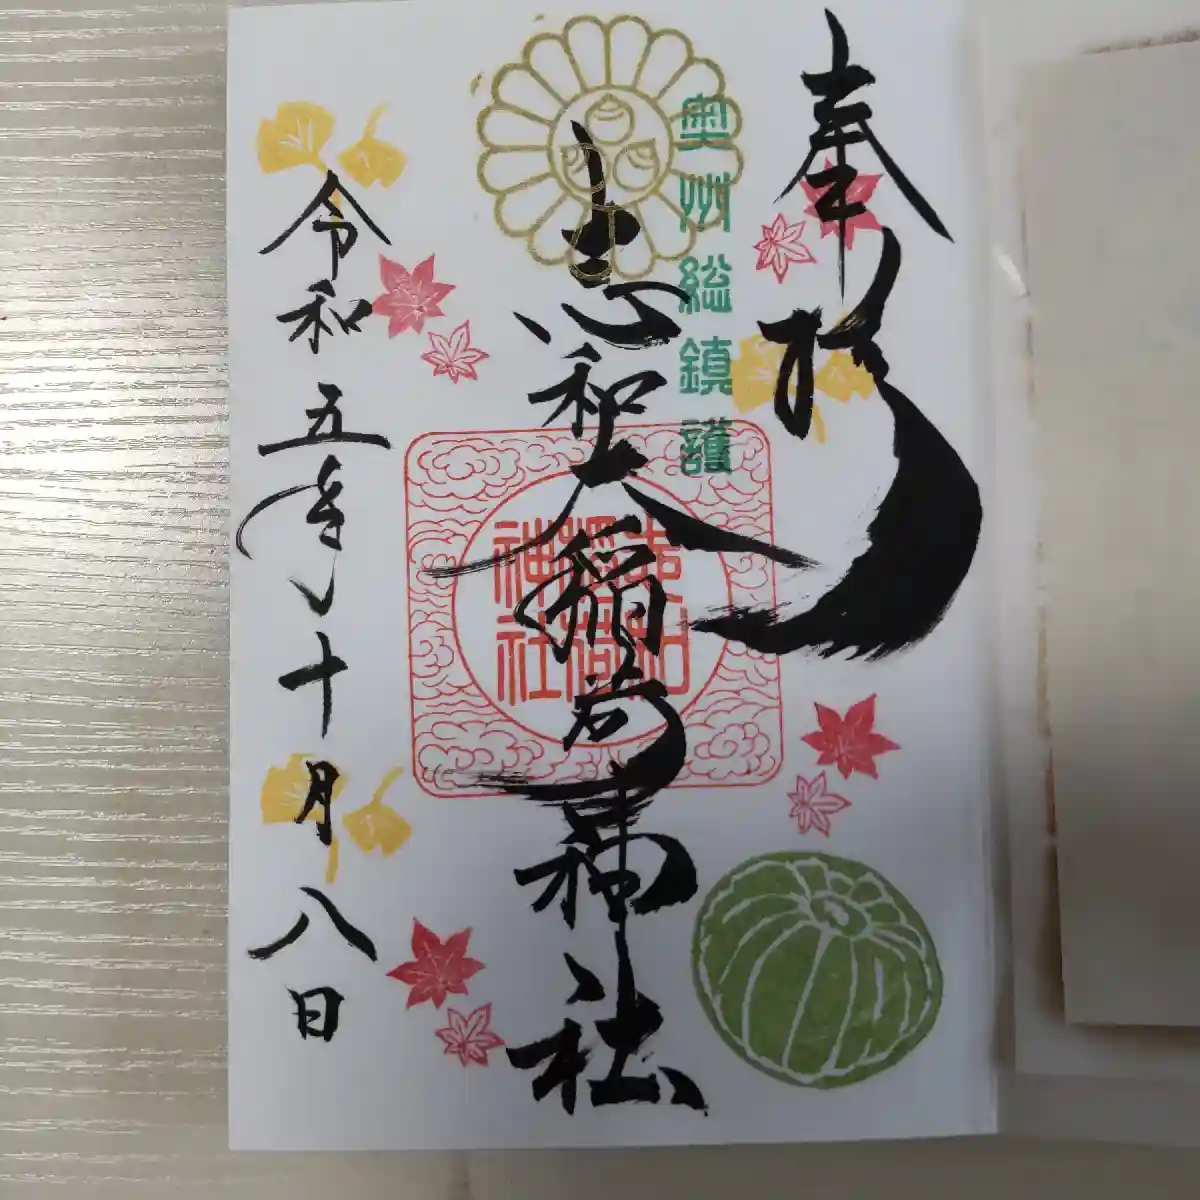 奉拝
奥州総鎮護
志和大稲荷神社
志和
稲荷
神社
令和五年十月八日